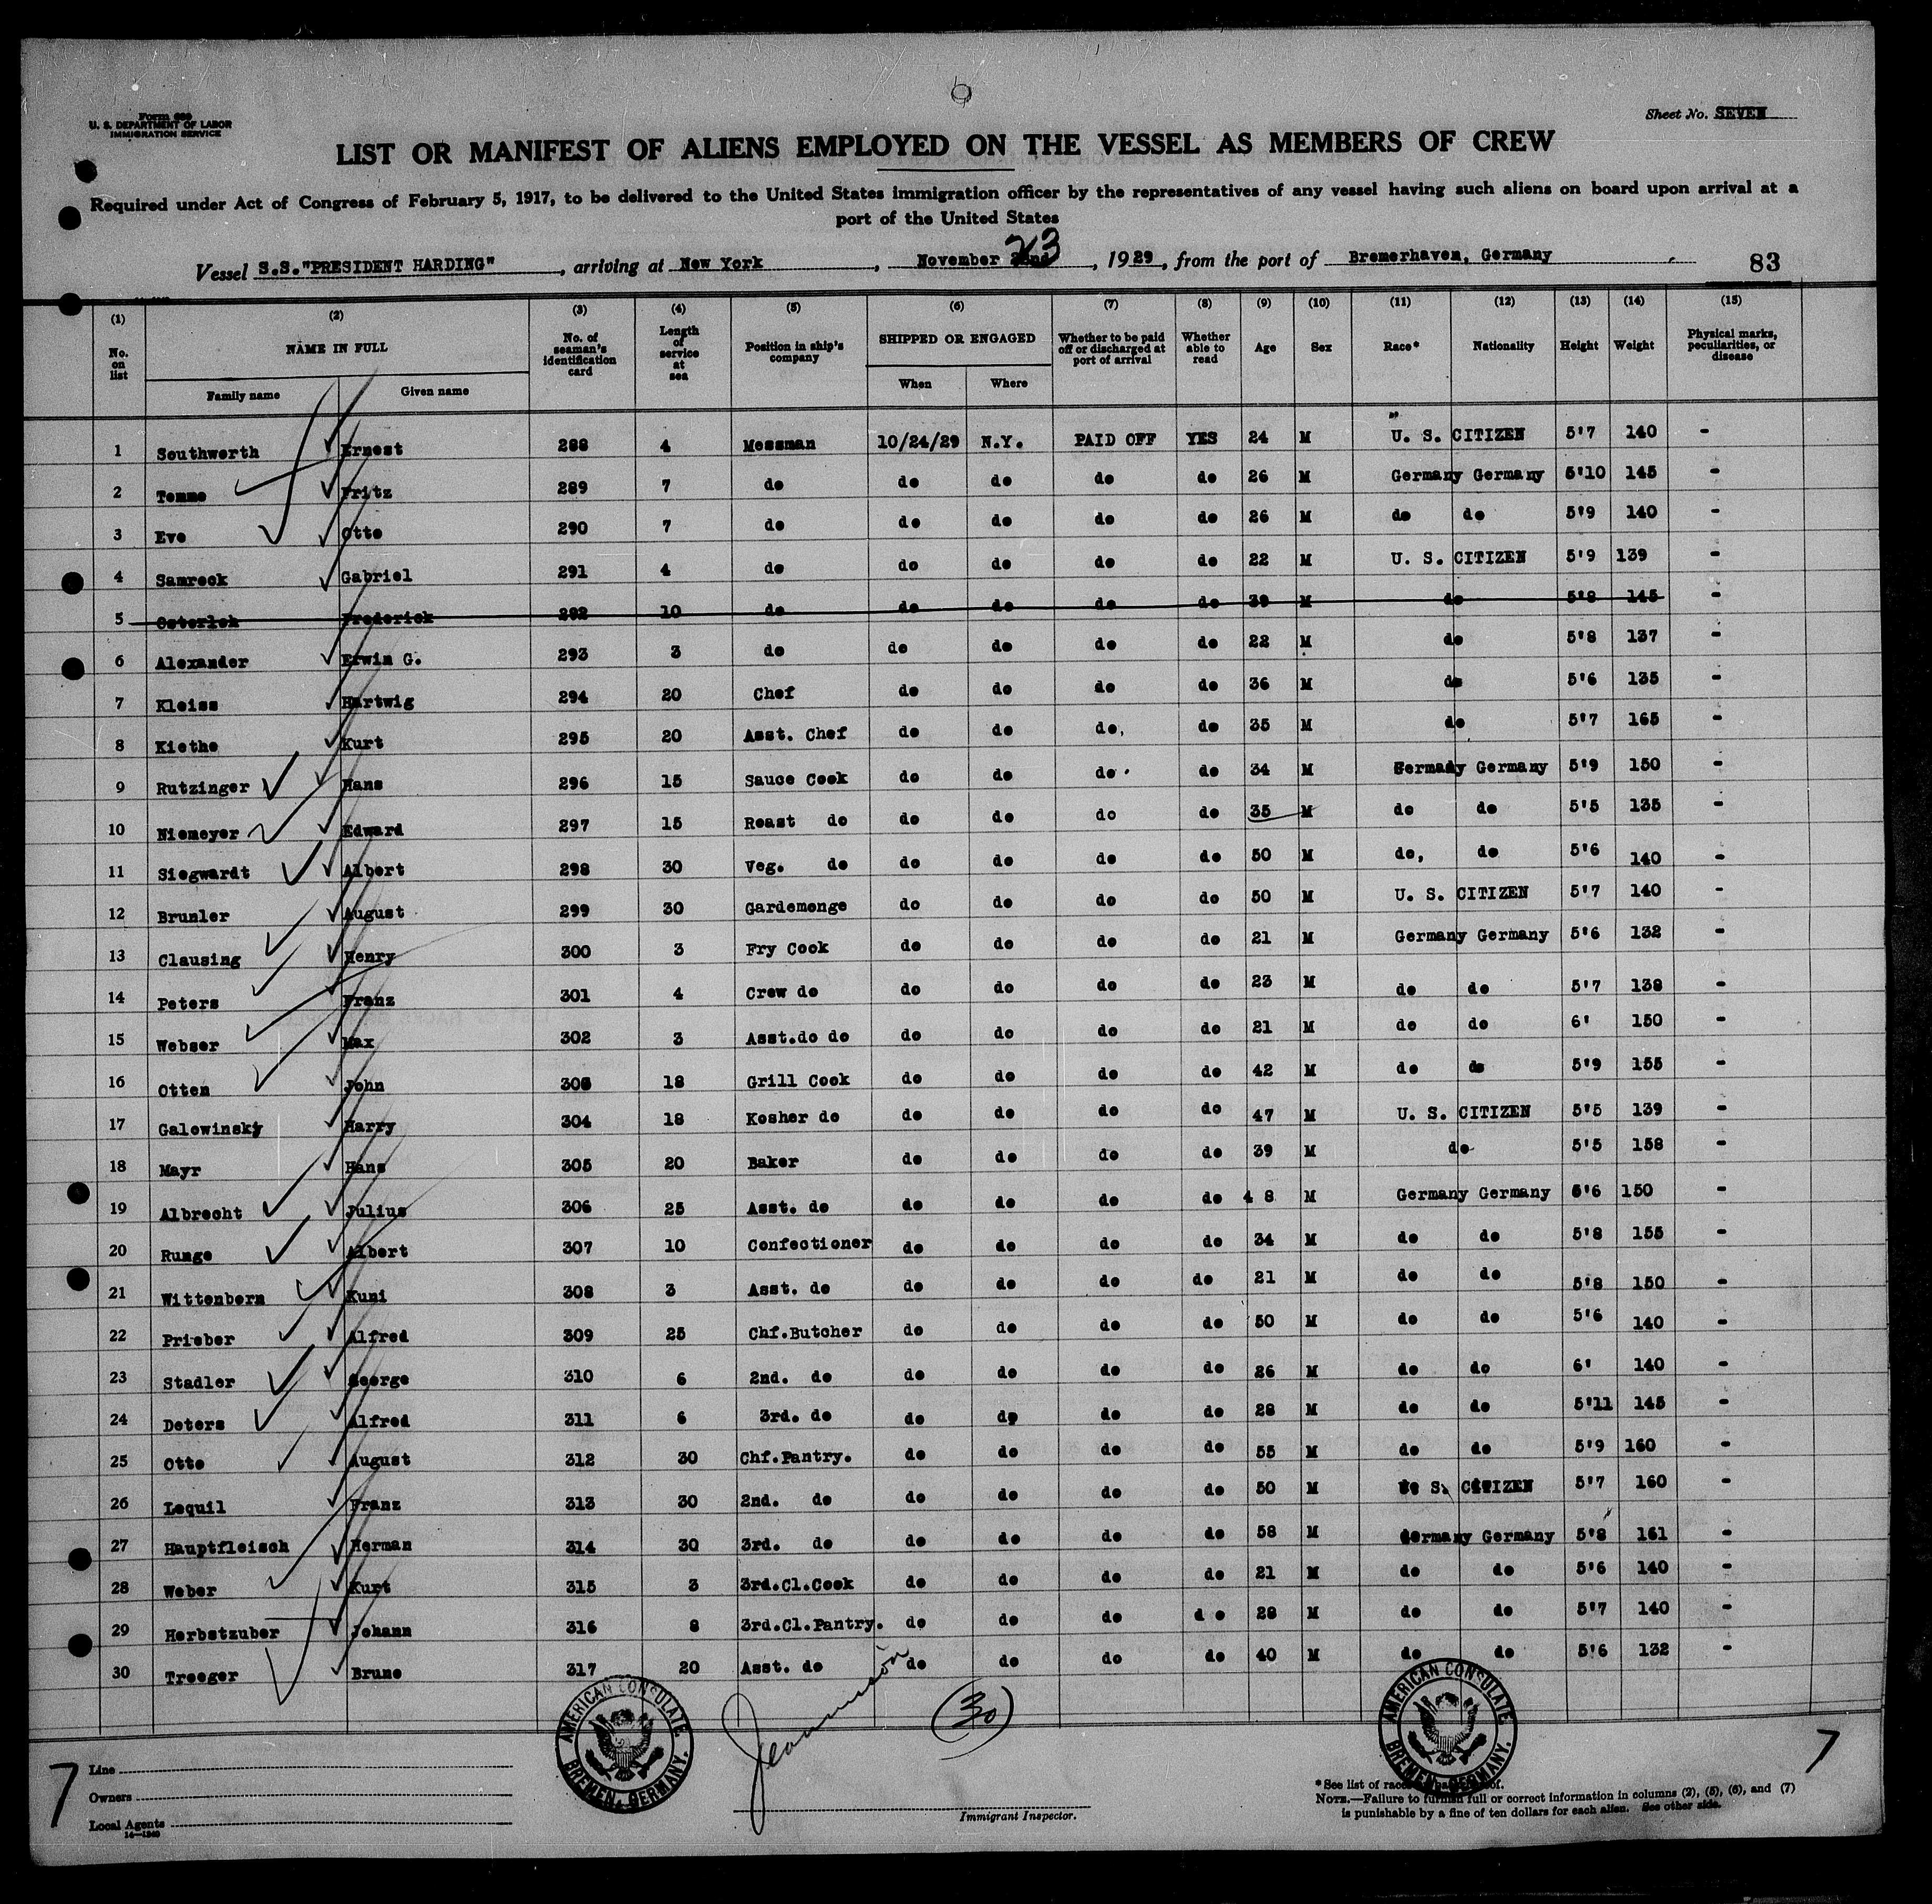 Form 689
U. S. DEPARTMENT OF LABOR
IMMIGRATION SERVICE
Sheet No. SEVEN
LIST OR MANIFEST OF ALIENS EMPLOYED ON THE VESSEL AS MEMBERS OF CREW
Required under Act of Congress of February 5, 1917, to be delivered to the United States immigration officer by the representatives of any vessel having such aliens on board upon arrival at a
port of the United States
Vessel S.S."PRESIDENT HARDING", arriving at New York, November 23, 1929, from the port of Bremerhaven, Germany 83
(1) (2) (3) (4) (5) (6) (7) (8) (9) (10) (11) (12) (13) (14) (15)
No. on list NAME IN FULL No. of seaman's identification card Length of service at sea Position in ship's company SHIPPED OR ENGAGED Whether to be paid off or discharged at port of arrival Whether able to read Age Sex Race* Nationality Height Weight Physical marks, peculiarities, or disease
Family name Given name When Where
1 Southworth Ernest 288 4 Messman 10/24/29 N.Y. PAID OFF YES 24 M U. S. CITIZEN 5'7 140 -
2 Temme Fritz 289 7 do do do do do 26 M Germany Germany 5'10 145 -
3 Eve Otto 290 7 do do do do do 26 M do do 5'9 140 -
4 Samrock Gabriel 291 4 do do do do do 22 M U. S. CITIZEN 5'9 139 -
5 Osterloh Frederick 292 10 do do do do do 39 M do 5'8 145 -
6 Alexander Erwin G. 293 3 do do do do do 22 M do 5'8 137 -
7 Kleiss Hartwig 294 20 Chef do do do do 36 M do 5'6 135 -
8 Kiethe Kurt 295 20 Asst. Chef do do do, do 35 M do 5'7 165 -
9 Rutzinger Hans 296 15 Sauce Cook do do do do 34 M Germany Germany 5'9 150 -
10 Niemeyer Edward 297 15 Roast do do do do do 35 M do do 5'5 135 -
11 Siegwardt Albert 298 30 Veg. do do do do do 50 M do, do 5'6 140 -
12 Brunler August 299 30 Gardemonge do do do do 50 M U. S. CITIZEN 5'7 140 -
13 Clausing Henry 300 3 Fry Cook do do do do 21 M Germany Germany 5'6 132 -
14 Peters Franz 301 4 Crew do do do do do 23 M do do 5'7 138 -
15 Webser Max 302 3 Asst.do do do do do do 21 M do do 6' 150 -
16 Otten John 303 18 Grill Cook do do do do 42 M do do 5'9 155 -
17 Galewinsky Harry 304 18 Kosher do do do do do 47 M U. S. CITIZEN 5'5 139 -
18 Mayr Hans 305 20 Baker do do do do 39 M do 5'5 158 -
19 Albrecht Julius 306 25 Asst. do do do do do 4 8 M Germany Germany 5'6 150 -
20 Runge Albert 307 10 Confectioner do do do do 34 M do do 5'8 155 -
21 Wittenborn Kuni 308 3 Asst. do do do do do 21 M do do 5'8 150 -
22 Prieber Alfred 309 25 Chf.Butcher do do do do 50 M do do 5'6 140 -
23 Stadler George 310 6 2nd. do do do do do 26 M do do 6' 140 -
24 Deters Alfred 311 6 3rd. do do do do do 28 M do do 5'11 145 -
25 Otto August 312 30 Chf.Pantry. do do do do 55 M do do 5'9 160 -
26 Lequil Franz 313 30 2nd. do do do do do 50 M U. S. CITIZEN 5'7 160 -
27 Hauptfleisch Herman 314 30 3rd. do do do do do 58 M Germany Germany 5'8 161 -
28 Weber Kurt 315 3 3rd.Cl.Cook do do do do 21 M do do 5'6 140 -
29 Herbstzuber Johann 316 8 3rd.Cl.Pantry. do do do d o 28 M do do 5'7 140 -
30 Treeger Bruno 317 20 Asst. do do do do do 40 M do do 5'6 132 -
AMERICAN CONSULATE BREMEN, GERMANY.
30
AMERICAN CONSULATE BREMEN, GERMANY.
7
7
Line
Owners
Local Agents
14—1240
Immigrant Inspector.
*See list of races
NOTE.—Failure to furnish full or correct information in columns (2), (5), (6), and (7)
is punishable by a fine of ten dollars for each alien. See other side.